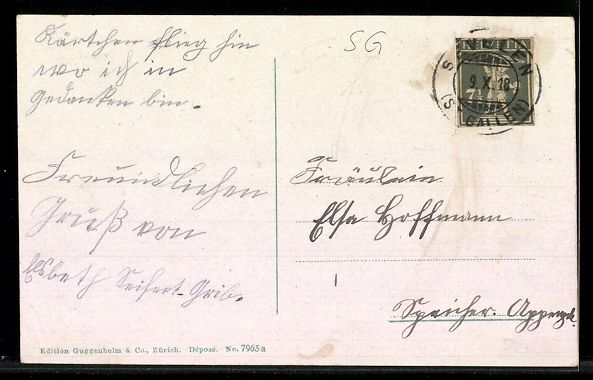 Kärtchen flieg hin
wo ich in
Gedanken bin.
Freundlichen
Gruß von
Elsbeth Seifert-Grib.
SG
HELVETIA
9.X.18
(ST. GALLEN)
7½
Fräulein
Elsa Hoffmann
Speicher. Appenzell.
Edition Guggenheim & Co., Zürich. Déposé. No. 7963 a